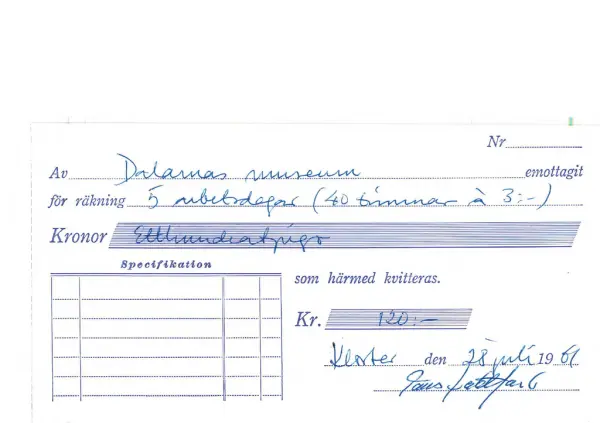 Nr
Av Dalarnas museum emottagit
för räkning 5 arbetsdagar (40 timmar à 3:-)
Kronor Etthundratjugo
Specifikation
som härmed kvitteras.
Kr. 120:-
Kloster den 28 juli 1961